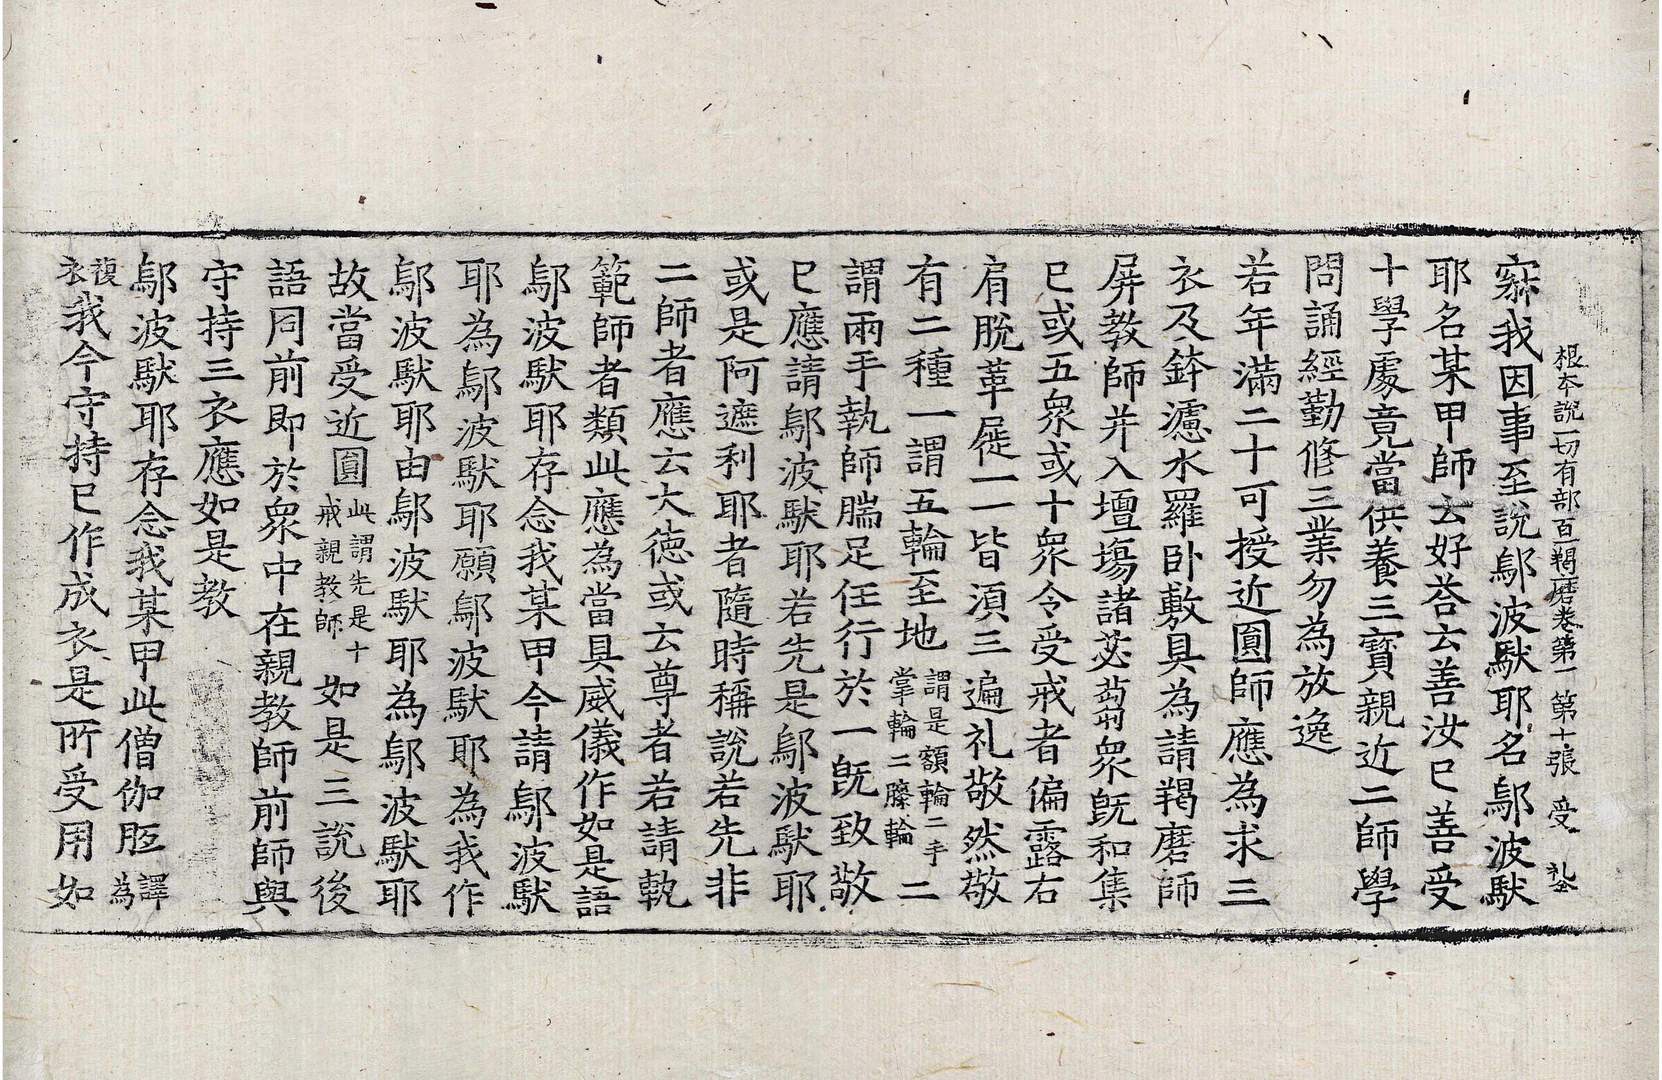 根本說一切有部百一羯磨卷第一 第十張 受
寐我因事至說鄔波馱耶名鄔波馱
耶名某甲師云好荅云善汝已善受
十學處竟當供養三寶親近二師學
問誦經勤修三業勿為放逸
若年滿二十可授近圓師應為求三
衣及鉢濾水羅卧敷具為請羯磨師
屏教師并入壇場諸苾蒭衆旣和集
已或五衆或十衆令受戒者偏露右
肩脫革屣一一皆須三遍礼敬然敬
有二種一謂五輪至地 謂是額輪二手掌輪二膝輪 二
謂兩手執師腨足任行於一旣致敬
已應請鄔波馱耶若先是鄔波馱耶
或是阿遮利耶者隨時稱說若先非
二師者應云大德或云尊者若請軌
範師者類此應為當具威儀作如是語
鄔波馱耶存念我某甲今請鄔波馱
耶為鄔波馱耶願鄔波馱耶為我作
鄔波馱耶由鄔波馱耶為鄔波馱耶
故當受近圓 此謂先是十戒親教師 如是三說後
語同前即於衆中在親教師前師與
守持三衣應如是教
鄔波馱耶存念我某甲此僧伽胝 譯為
複衣 我今守持已作成衣是所受用如